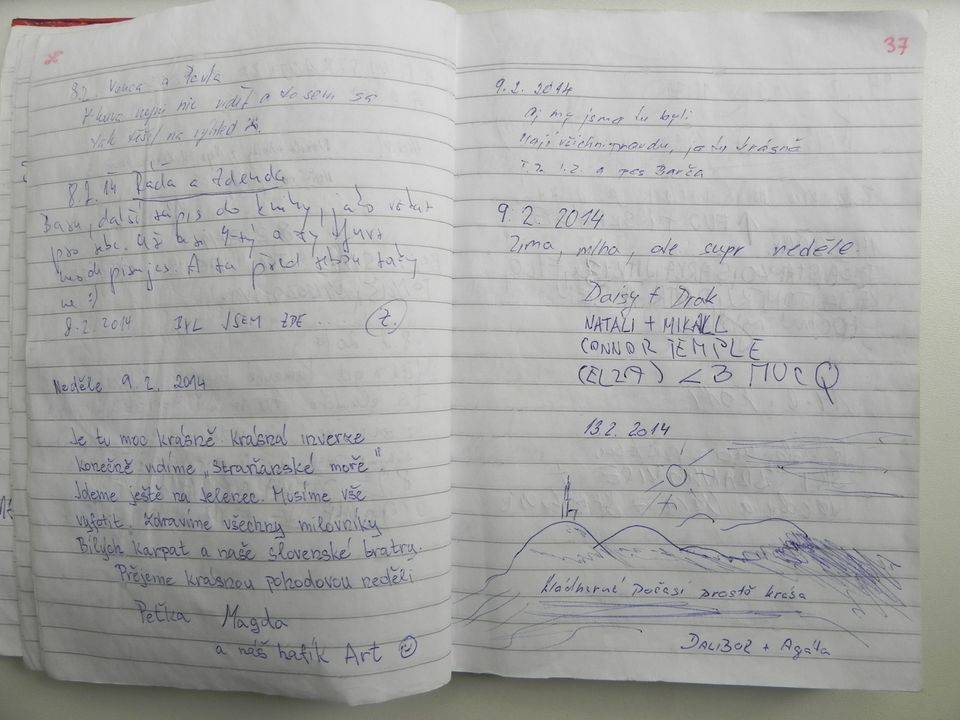 8.2. Vonca a Pavla
nic vidět a to sem sa
tak těšil na výhled
8.2. 14 Raďa a Zdenda
další zápis do knihy, jako vzkaz
pro
A ta před tebou taky
ne :)
8.2.2014 BYL JSEM ZDE... Z.
Neděle 9.2. 2014
Je tu moc krásně krásná inverze
konečně vidíme „Straňanské moře".
Jdeme ještě na Jelenec. Musíme vše
vyfotit. Zdravíme všechny milovníky
Bílých Karpat a naše slovenské bratry.
Přejeme krásnou pohodovou neděli
Peťka Magda
a náš hafík Art
37
9.2. 2014
Aj my jsme tu byli
Mají všichni pravdu, je tu krásně
a pes Barča
9. 2. 2014
Zima, mlha, ale supr neděle.
Daisy + Drak
NATALI + MIKAEL
CONNOR TEMPLE
(ELZA) <3 MUCQ
13.2. 2014
Nádherné počasí prostě krása
DALIBOR + Agáta